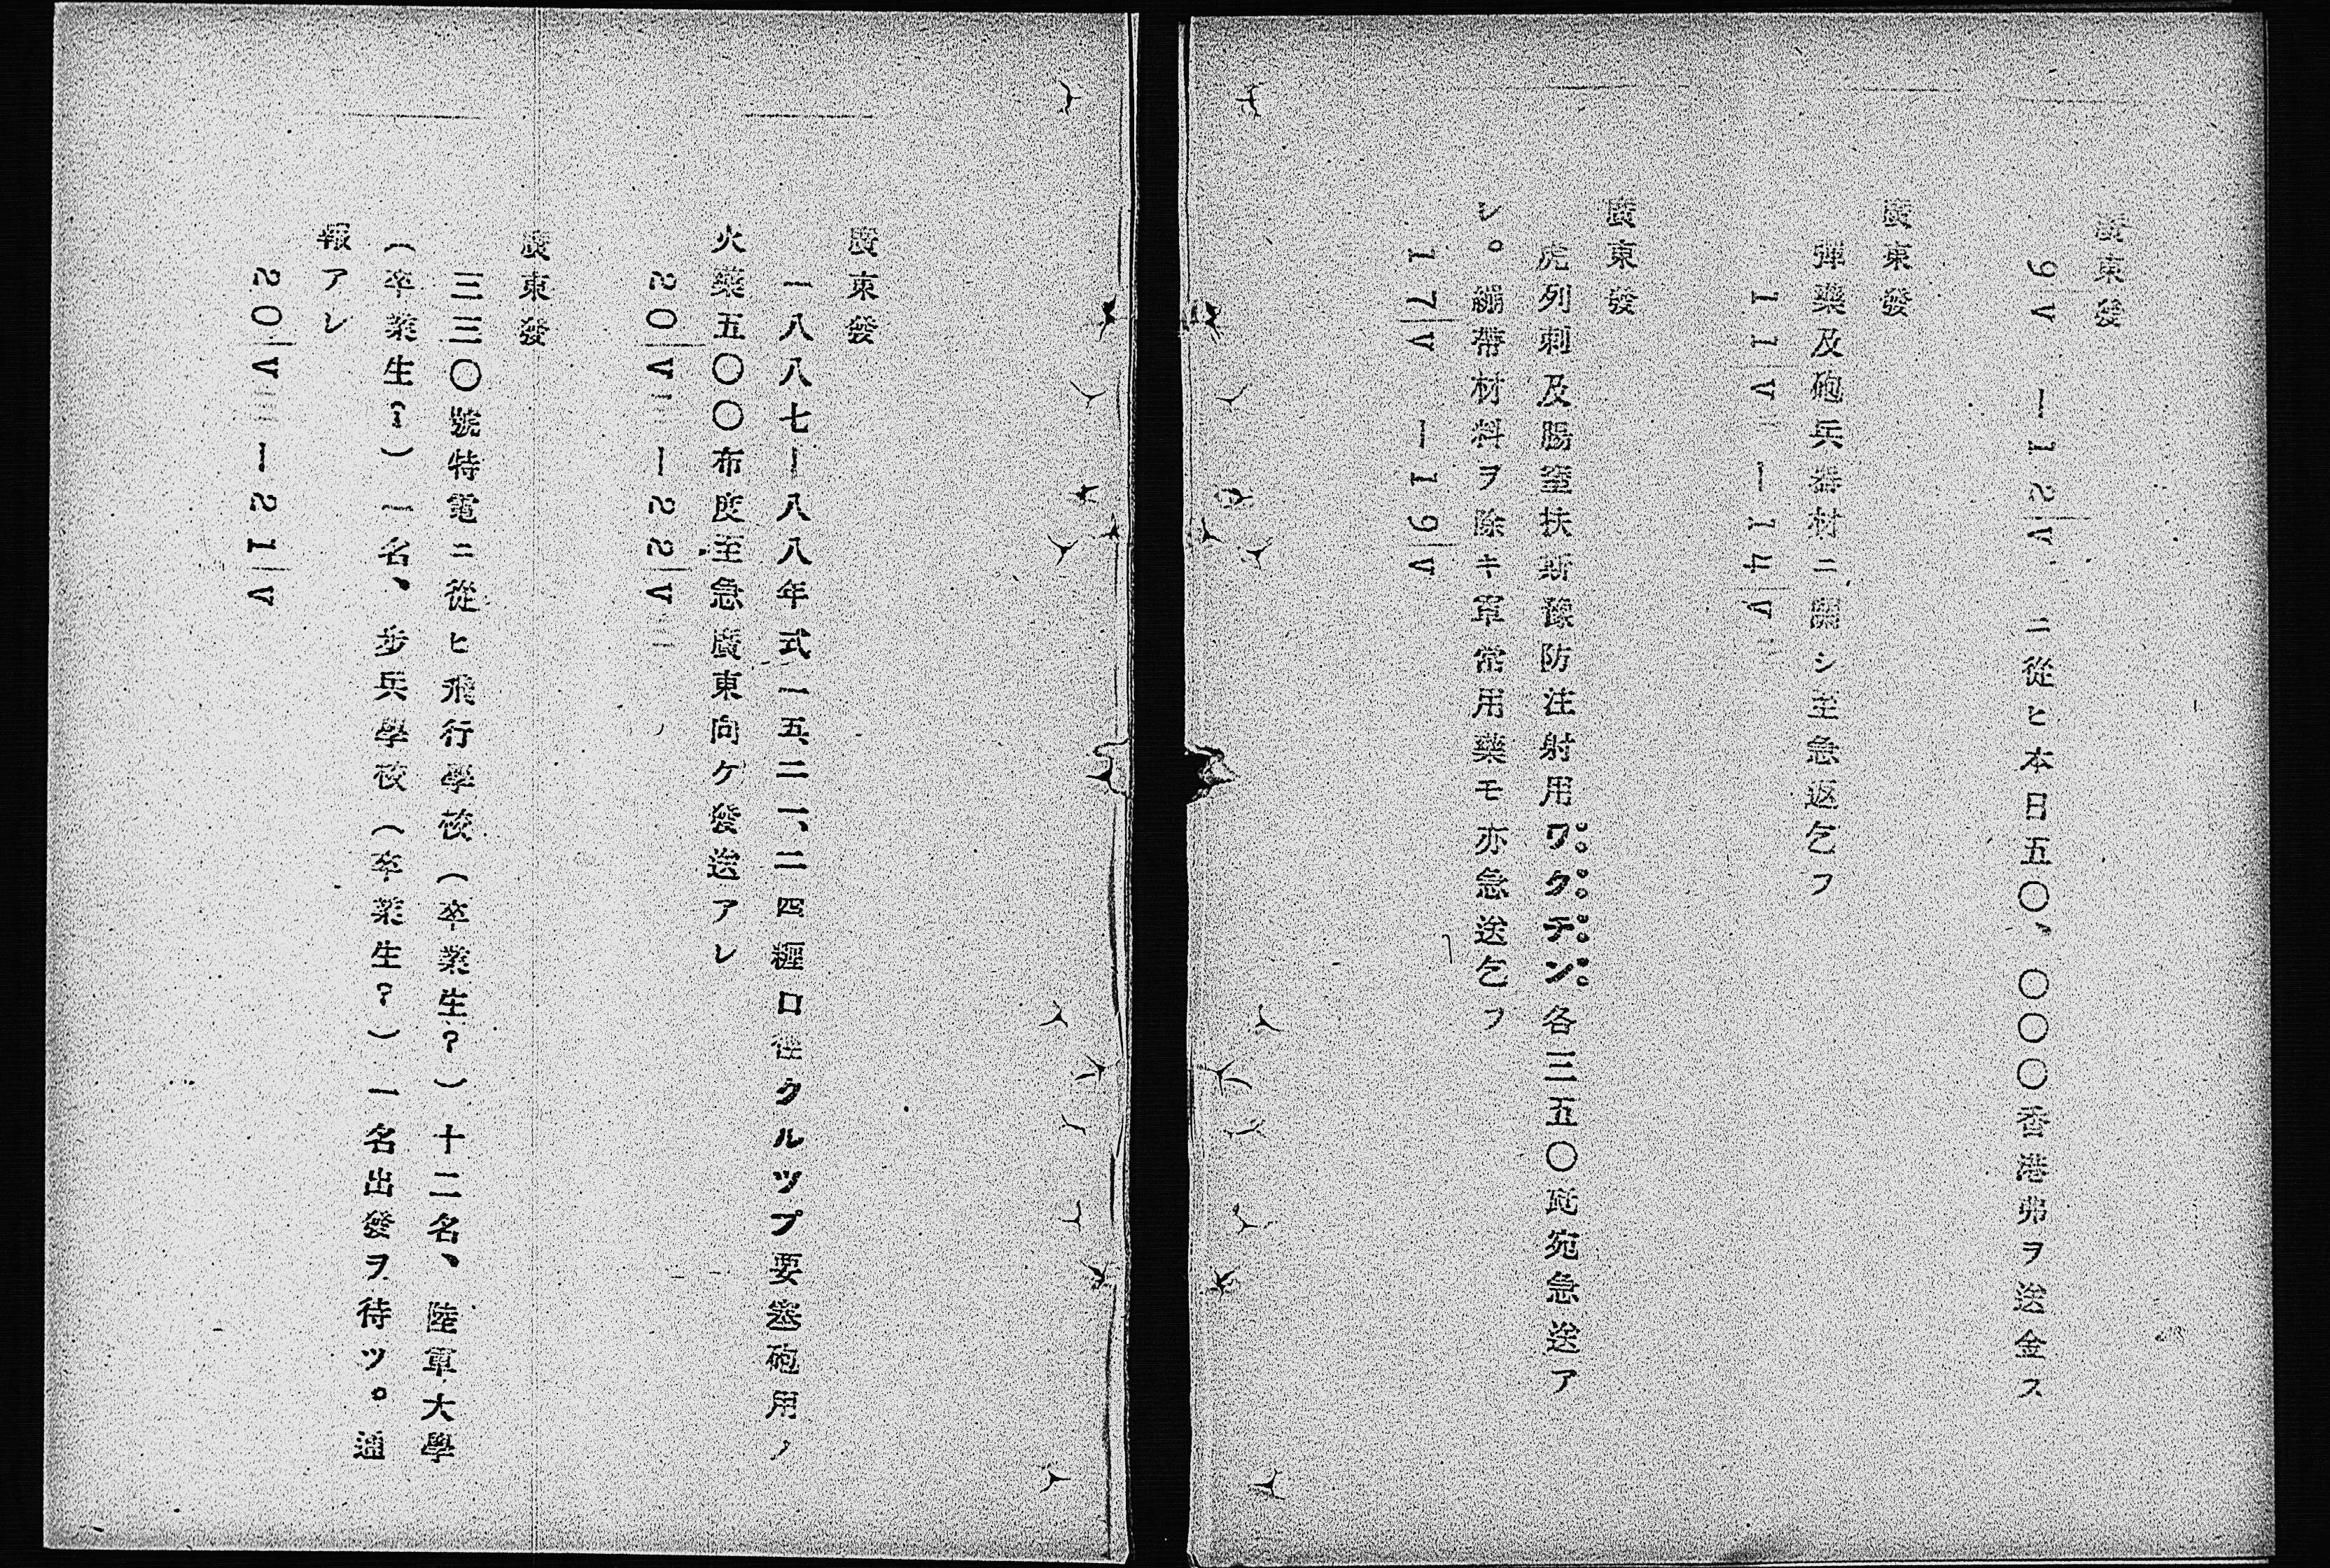 廣東發
9/V—12/Vニ從ヒ本日五〇、〇〇〇香港弗ヲ送金ス
廣東發
彈藥及砲兵器材ニ關シ至急返乞フ
11/V—14/V
廣東發
虎列剌及腸窒扶斯豫防注射用ワクチン各三五〇瓩宛急送ア
レ。繃帶材料ヲ除キ軍常用藥モ亦急送乞フ
17/V—19/V
廣東發
一八八七—八八年式一五、二一、二四糎口徑クルツプ要塞砲用ノ
火藥五〇〇布度至急廣東向ケ發送アレ
20/V—22/V
廣東發
三三〇號特電ニ從ヒ飛行學校(卒業生?)十二名、陸軍大學
(卒業生?)一名、步兵學校(卒業生?)一名出發ヲ待ツ。通
報アレ
20/V—21/V